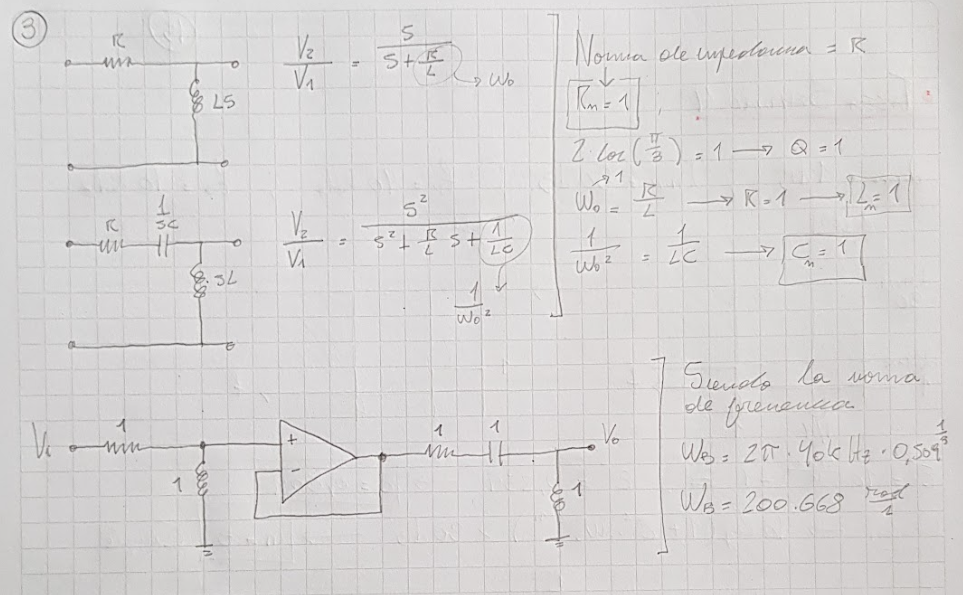 3
R
LS
V2/V1 = S/(S + R/L) → W0
R
1/SC
SL
V2/V1 = S²/(S² + R/L S + 1/LC)
1/W0²
Norma de impedancia = R
Rn = 1
2 cos(π/3) = 1 → Q = 1
W0 = R/L → R = 1 → Ln = 1
1
1/W0² = 1/LC → Cn = 1
Vi
1
1
+
-
1
1
1
Vo
Siendo la norma
de frecuencia
WB = 2π · 40kHz · 0,509^(1/3)
WB = 200.668 rad/1